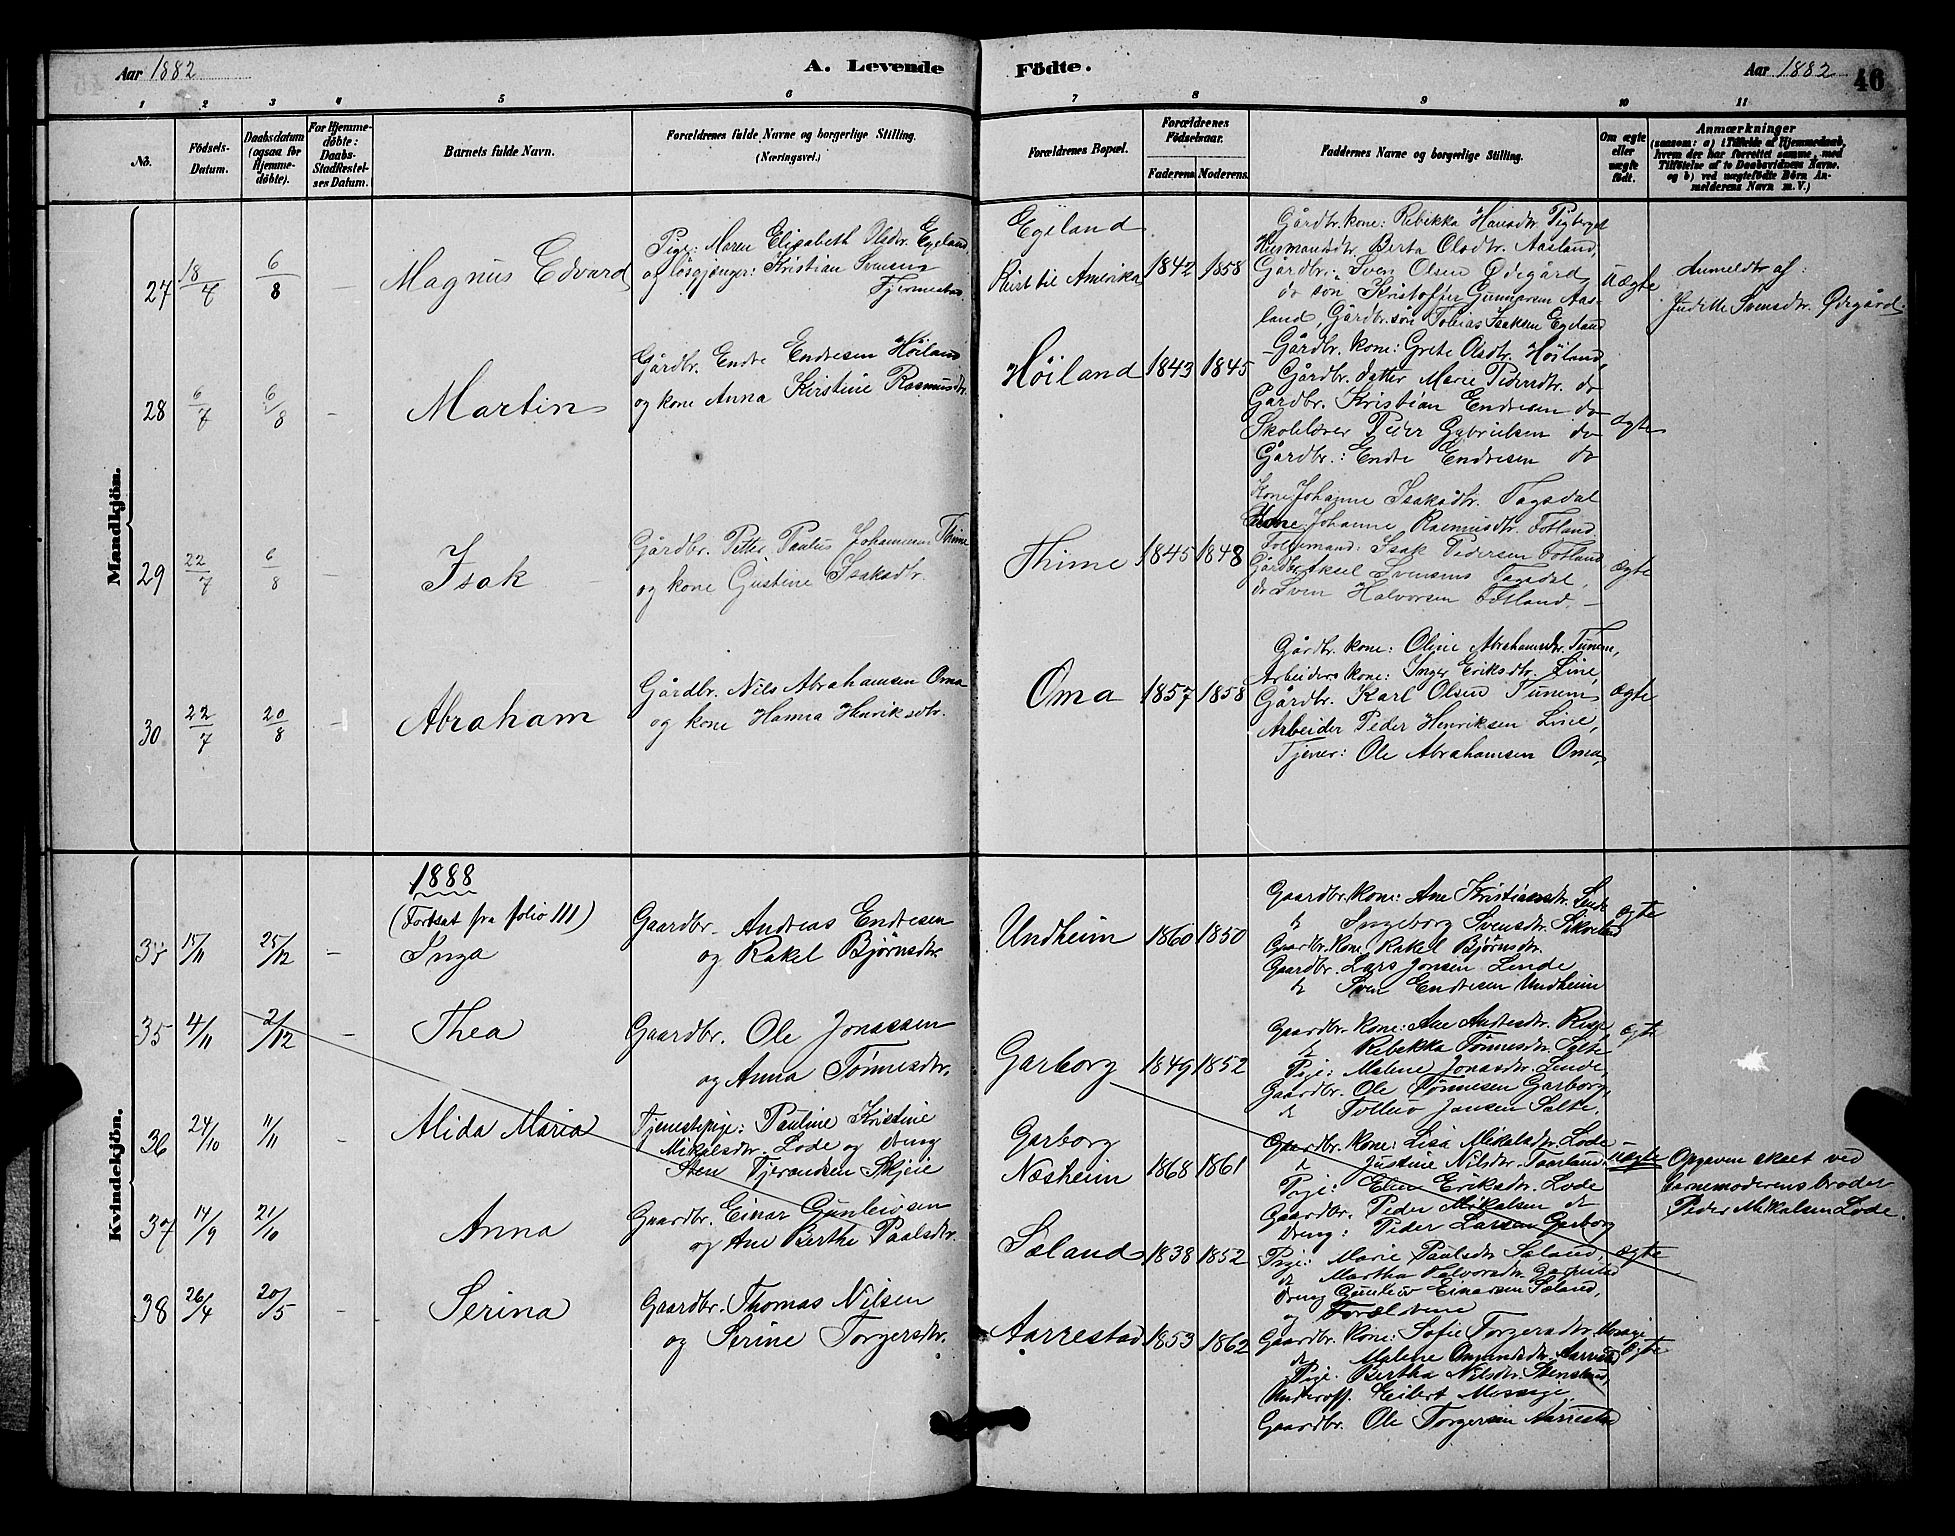 Aar 1882
A. Levende
Födte.
Aar 1882
46
1 2 3 4 5 6 7 8 9 10 11
No.
Födsels-Datum.
Daabsdatum (ogsaa for Hjemme-döbte).
For Hjemme-döbte: Daabs-Stadfæstel-ses Datum.
Barnets fulde Navn.
Forældrenes fulde Navne og borgerlige Stilling.
(Næringsvei.)
Forældrenes Bopæl.
Forældrenes Födselsaar.
Faderens. Moderens.
Faddernes Navne og borgerlige Stilling.
Om ægte eller uægte födt.
Anmærkninger
(saasom: a) i Tilfælde af Hjemmedaab,
hvem der har forrettet samme, med
Tilföielse af to Daabsvidners Navne.
og b) ved uægtefödte Börn An-
melderens Navn m. V.)
Mandkjön.
27 18/7 6/8 Magnus Edvard
Pige: Maren Elisabeth Olsdtr. Egeland
og løsgjænger: Kristian Svensen
Tjermestad
Egeland
Reist til Amerika 1842 1858
Gårdbr. kone: Rebikka Hansdtr.
Husmandsdtr. Berta Olsdtr. Aasland,
Gårdbr. Sven Olsen Ødegård
do søn Kristoffer Gunnarsen Aas-
land, Gårdbr. søn Tobias Isaksen Egeland
uægte
Anmeldt af:
Judithe Svensdtr. Ødegård.
28 6/7 6/8 - Martin
Gårdbr. Endre Endresen Høiland
og kone Anna Kirstine Rasmusdtr.
Høiland 1843 1845
Gårdbr. kone: Grete Olsdtr. Høiland,
Gårdbr. datter Marie Pedersdtr. do
Gårdbr. Kristian Endresen do
Skolelærer Peder Gabrielsen do
Gårdbr.: Endre Endresen do
ægte
29 22/7 6/8 - Isak
Gårdbr. Petter Paulus Johannesen Thime
og kone Gustine Isaksdtr.
Thime 1845 1848
Kone Johanne Isaksdtr. Tagsdal
Kone: Johanne Rasmusdtr. Fotland
Isak Pedersen Fotland
Gårdbr. Aksel Svensens Tagsdal,
do Sven Halvorsen Fotland. -
ægte
30 22/7 20/8 - Abraham
Gårdbr. Nils Abrahamsen Oma
og kone Hanna Henriksdtr.
Oma 1857 1858
Gårdbr. kone: Oline Abrahamsdtr. Tunem,
Arbeiders kone: Inger Eriksdtr. Line,
Gårdbr. Karl Olsen Tunem
Arbeider Peder Henriksen Line,
Tjener: Ole Abrahamsen Oma,
ægte
Kvindekjön.
1888
(Fortsat fra folio 111)
34 15/11 25/12 - Inga
Gaardbr. Andreas Endresen
og Rakel Bjørnsdtr.
Undheim 1860 1850
Gaardbr. kone: Ane Kristiansdtr. Lende
do Ingeborg Svensdtr.
Gaardbr. kone Rakel Bjørnsdtr.
Gaardbr. Lars Jonsen Lende
do Sven Endresen Undheim
ægte
35 4/11 2/12 - Thea
Gaardbr. Ole Jonassen
og Anna Tønnesdtr.
Garborg 1849 1852
Gaardbr. kone: Ane Andresdtr.
do Rebekka Tønnesdtr. Salte
Pige: Malene Jonasdtr. Lende,
Gaardbr. Ole Tønnesen Garborg,
do Jansen Salte,
ægte
36 24/10 11/11 - Alida Maria
Tjenestepige: Pauline Kristine
Mikalsdtr. Lode og dreng
Sten Tjerandsen Skjeie
Garborg
Næsheim 1868 1861
Gaardbr. kone: Lisa Mikalsdtr. Lode -
do Justine Nilsdtr. Taarland.
Pige: Elen Eriksdtr. Lode
Gaardbr. Peder Mikalsen do
dreng: Peder Larsen Garborg
uægte
Opgaven skeet ved
barnemoderens broder
Peder Mikalsen Lode.
37 14/9 21/10 Anna
Gaardbr. Einar Gunleivsen
og Ane Berthe Paalsdtr.
Sæland 1838 1852
Pige: Marie Paulsdtr Sæland,
do Martha Halvorsdtr.
dreng Gunleiv Einarsen Sæland,
og Forældrene
ægte
38 26/4 20/5 - Serina
Gaardbr. Thomas Nilsen
og Serine Torgersdtr.
Aarrestad 1853 1862
Gaardbr. kone: Sofie Torgersdtr. Mossige
do Malene Aarrestad
Pige. Bertha Nilsdtr.
Underoff. Eilert Mossige,
Gaardbr. Ole Torgersen Aarrestad
ægte